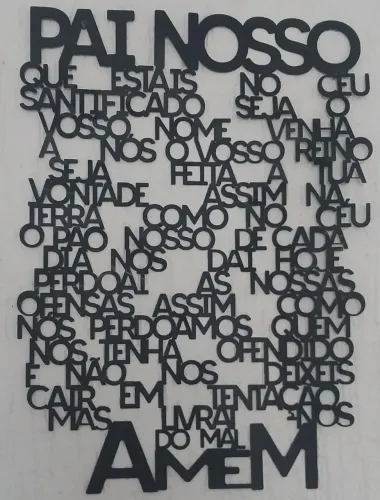 PAI NOSSO
QUE ESTAIS NO CEU
SANTIFICADO SEJA O
VOSSO NOME VENHA
A NÓS O VOSSO REINO
SEJA FEITA A TUA
VONTADE ASSIM NA
TERRA COMO NO CEU
O PAO NOSSO DE CADA
DIA NOS DAI HOJE
PERDOAI AS NOSSAS
OFENSAS ASSIM COMO
NÓS PERDOAMOS QUEM
NOS TENHA OFENDIDO
E NÃO NOS DEIXEIS
CAIR EM TENTAÇAO
MAS LIVRAI-NOS
DO MAL
AMEM